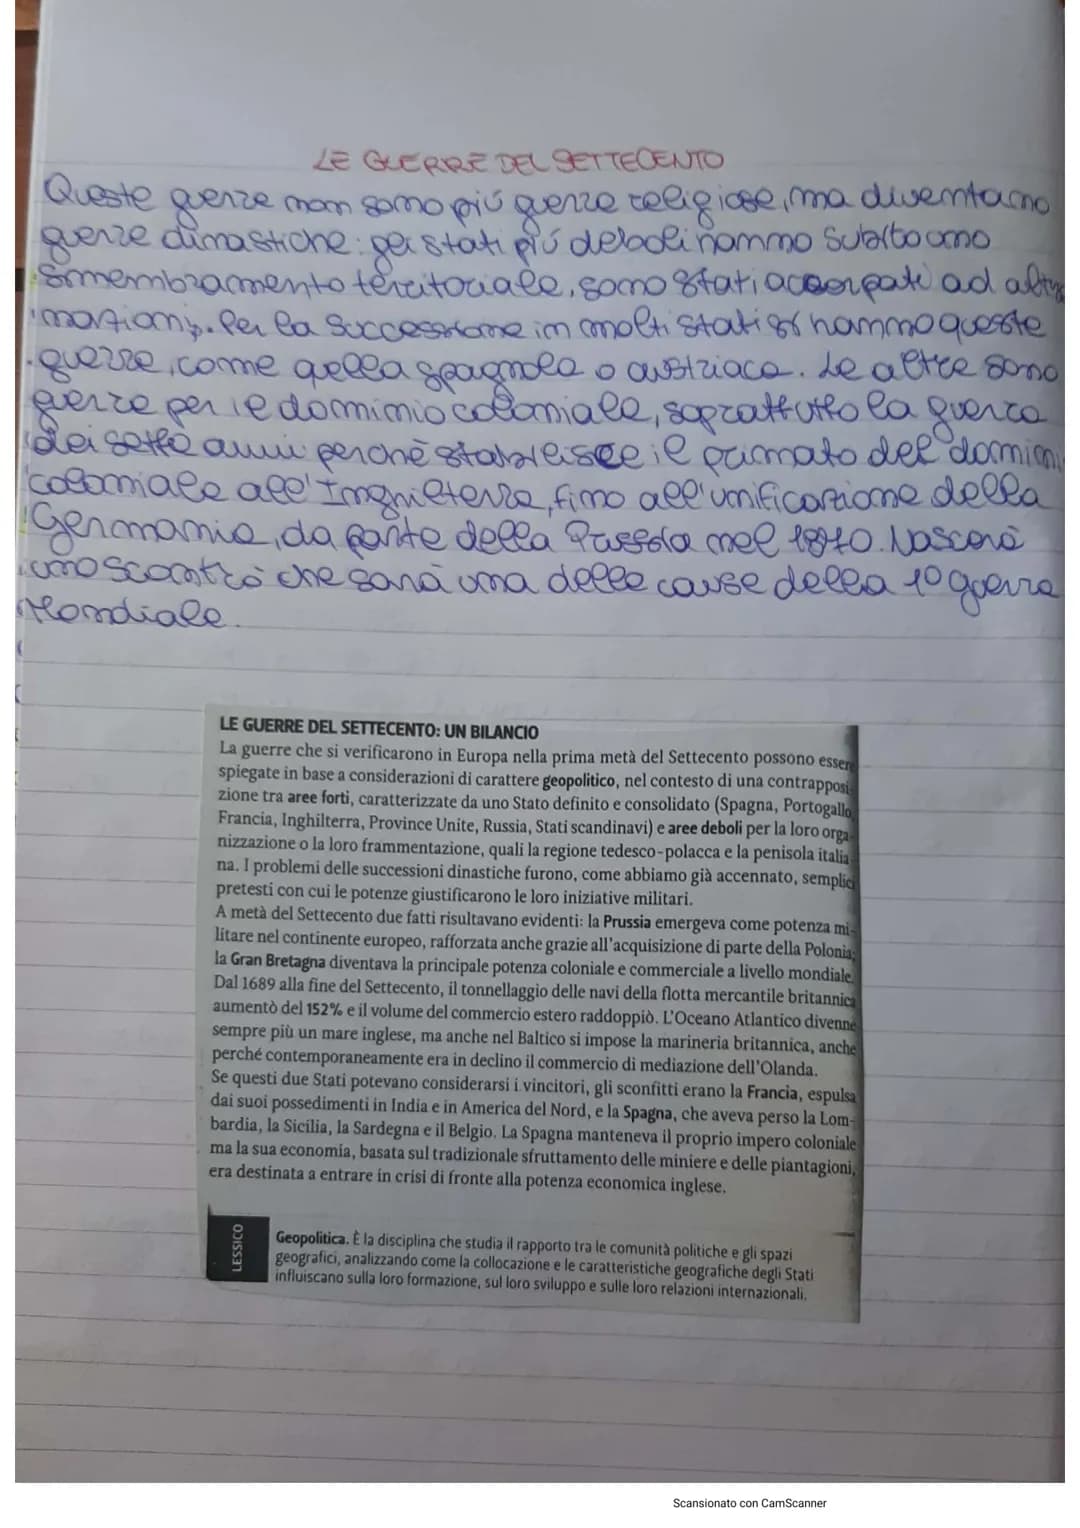 LE GUERRE DEL SETTECENTO
Queste guerre non sono più guerre religiose, ma diventano
guerre dinastiche: gli stati più deboli hanno subito uno
smembramento territoriale, sono stati accorpati ad altre
nazioni. Per la successione in molti stati si hanno queste
guerre, come quella spagnola o austriaca. Le altre sono
guerre per il dominio coloniale, soprattutto la guerra
dei sette anni perchè stabilisce il primato del dominio
coloniale all'Inghilterra, fino all'unificazione della
Germania, da parte della Prussia nel 1870. Nascerà
uno scontro che sarà una delle cause della 1° guerra
Mondiale.
LE GUERRE DEL SETTECENTO: UN BILANCIO
La guerre che si verificarono in Europa nella prima metà del Settecento possono essere
spiegate in base a considerazioni di carattere geopolitico, nel contesto di una contrapposi-
zione tra aree forti, caratterizzate da uno Stato definito e consolidato (Spagna, Portogallo,
Francia, Inghilterra, Province Unite, Russia, Stati scandinavi) e aree deboli per la loro orga-
nizzazione o la loro frammentazione, quali la regione tedesco-polacca e la penisola italia-
na. I problemi delle successioni dinastiche furono, come abbiamo già accennato, semplici
pretesti con cui le potenze giustificarono le loro iniziative militari.
A metà del Settecento due fatti risultavano evidenti: la Prussia emergeva come potenza mi-
litare nel continente europeo, rafforzata anche grazie all'acquisizione di parte della Polonia;
la Gran Bretagna diventava la principale potenza coloniale e commerciale a livello mondiale.
Dal 1689 alla fine del Settecento, il tonnellaggio delle navi della flotta mercantile britannica
aumentò del 152% e il volume del commercio estero raddoppiò. L'Oceano Atlantico divenne
sempre più un mare inglese, ma anche nel Baltico si impose la marineria britannica, anche
perché contemporaneamente era in declino il commercio di mediazione dell'Olanda.
Se questi due Stati potevano considerarsi i vincitori, gli sconfitti erano la Francia, espulsa
dai suoi possedimenti in India e in America del Nord, e la Spagna, che aveva perso la Lom-
bardia, la Sicilia, la Sardegna e il Belgio. La Spagna manteneva il proprio impero coloniale
ma la sua economia, basata sul tradizionale sfruttamento delle miniere e delle piantagioni,
era destinata a entrare in crisi di fronte alla potenza economica inglese.
LESSICO
Geopolitica. È la disciplina che studia il rapporto tra le comunità politiche e gli spazi
geografici, analizzando come la collocazione e le caratteristiche geografiche degli Stati
influiscano sulla loro formazione, sul loro sviluppo e sulle loro relazioni internazionali.
Scansionato con CamScanner